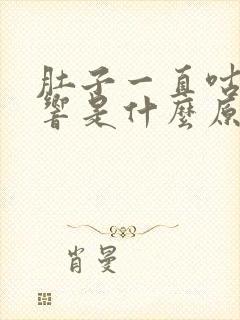 肚子一直咕
響是什麼原
肖曼